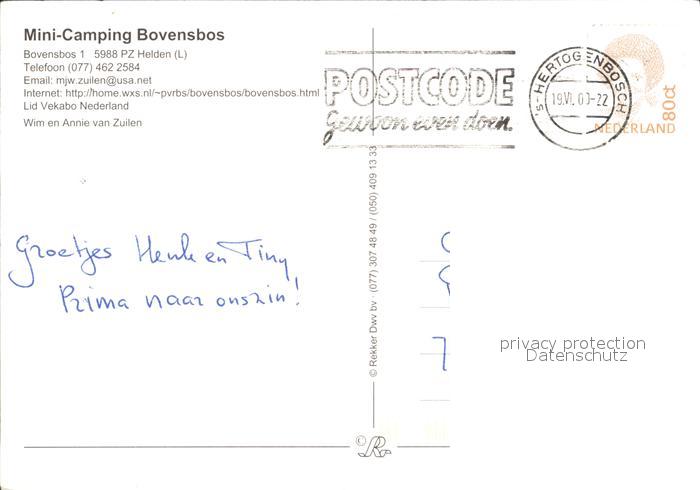 Mini-Camping Bovensbos
Bovensbos 1 5988 PZ Helden (L)
Telefoon (077) 462 2584
Email: mjw.zuilen@usa.net
Internet: http://home.wxs.nl/~pvrbs/bovensbos/bovensbos.html
Lid Vekabo Nederland
Wim en Annie van Zuilen
POSTCODE
Gewoon even doen.
's-HERTOGENBOSCH
19.VI.00-22
NEDERLAND
80ct
© Rekker Dwv bv · (077) 307 48 49 / (050) 409 13 33
Groetjes Henk en Tiny
Prima naar onszin!
7
privacy protection
Datenschutz
©R